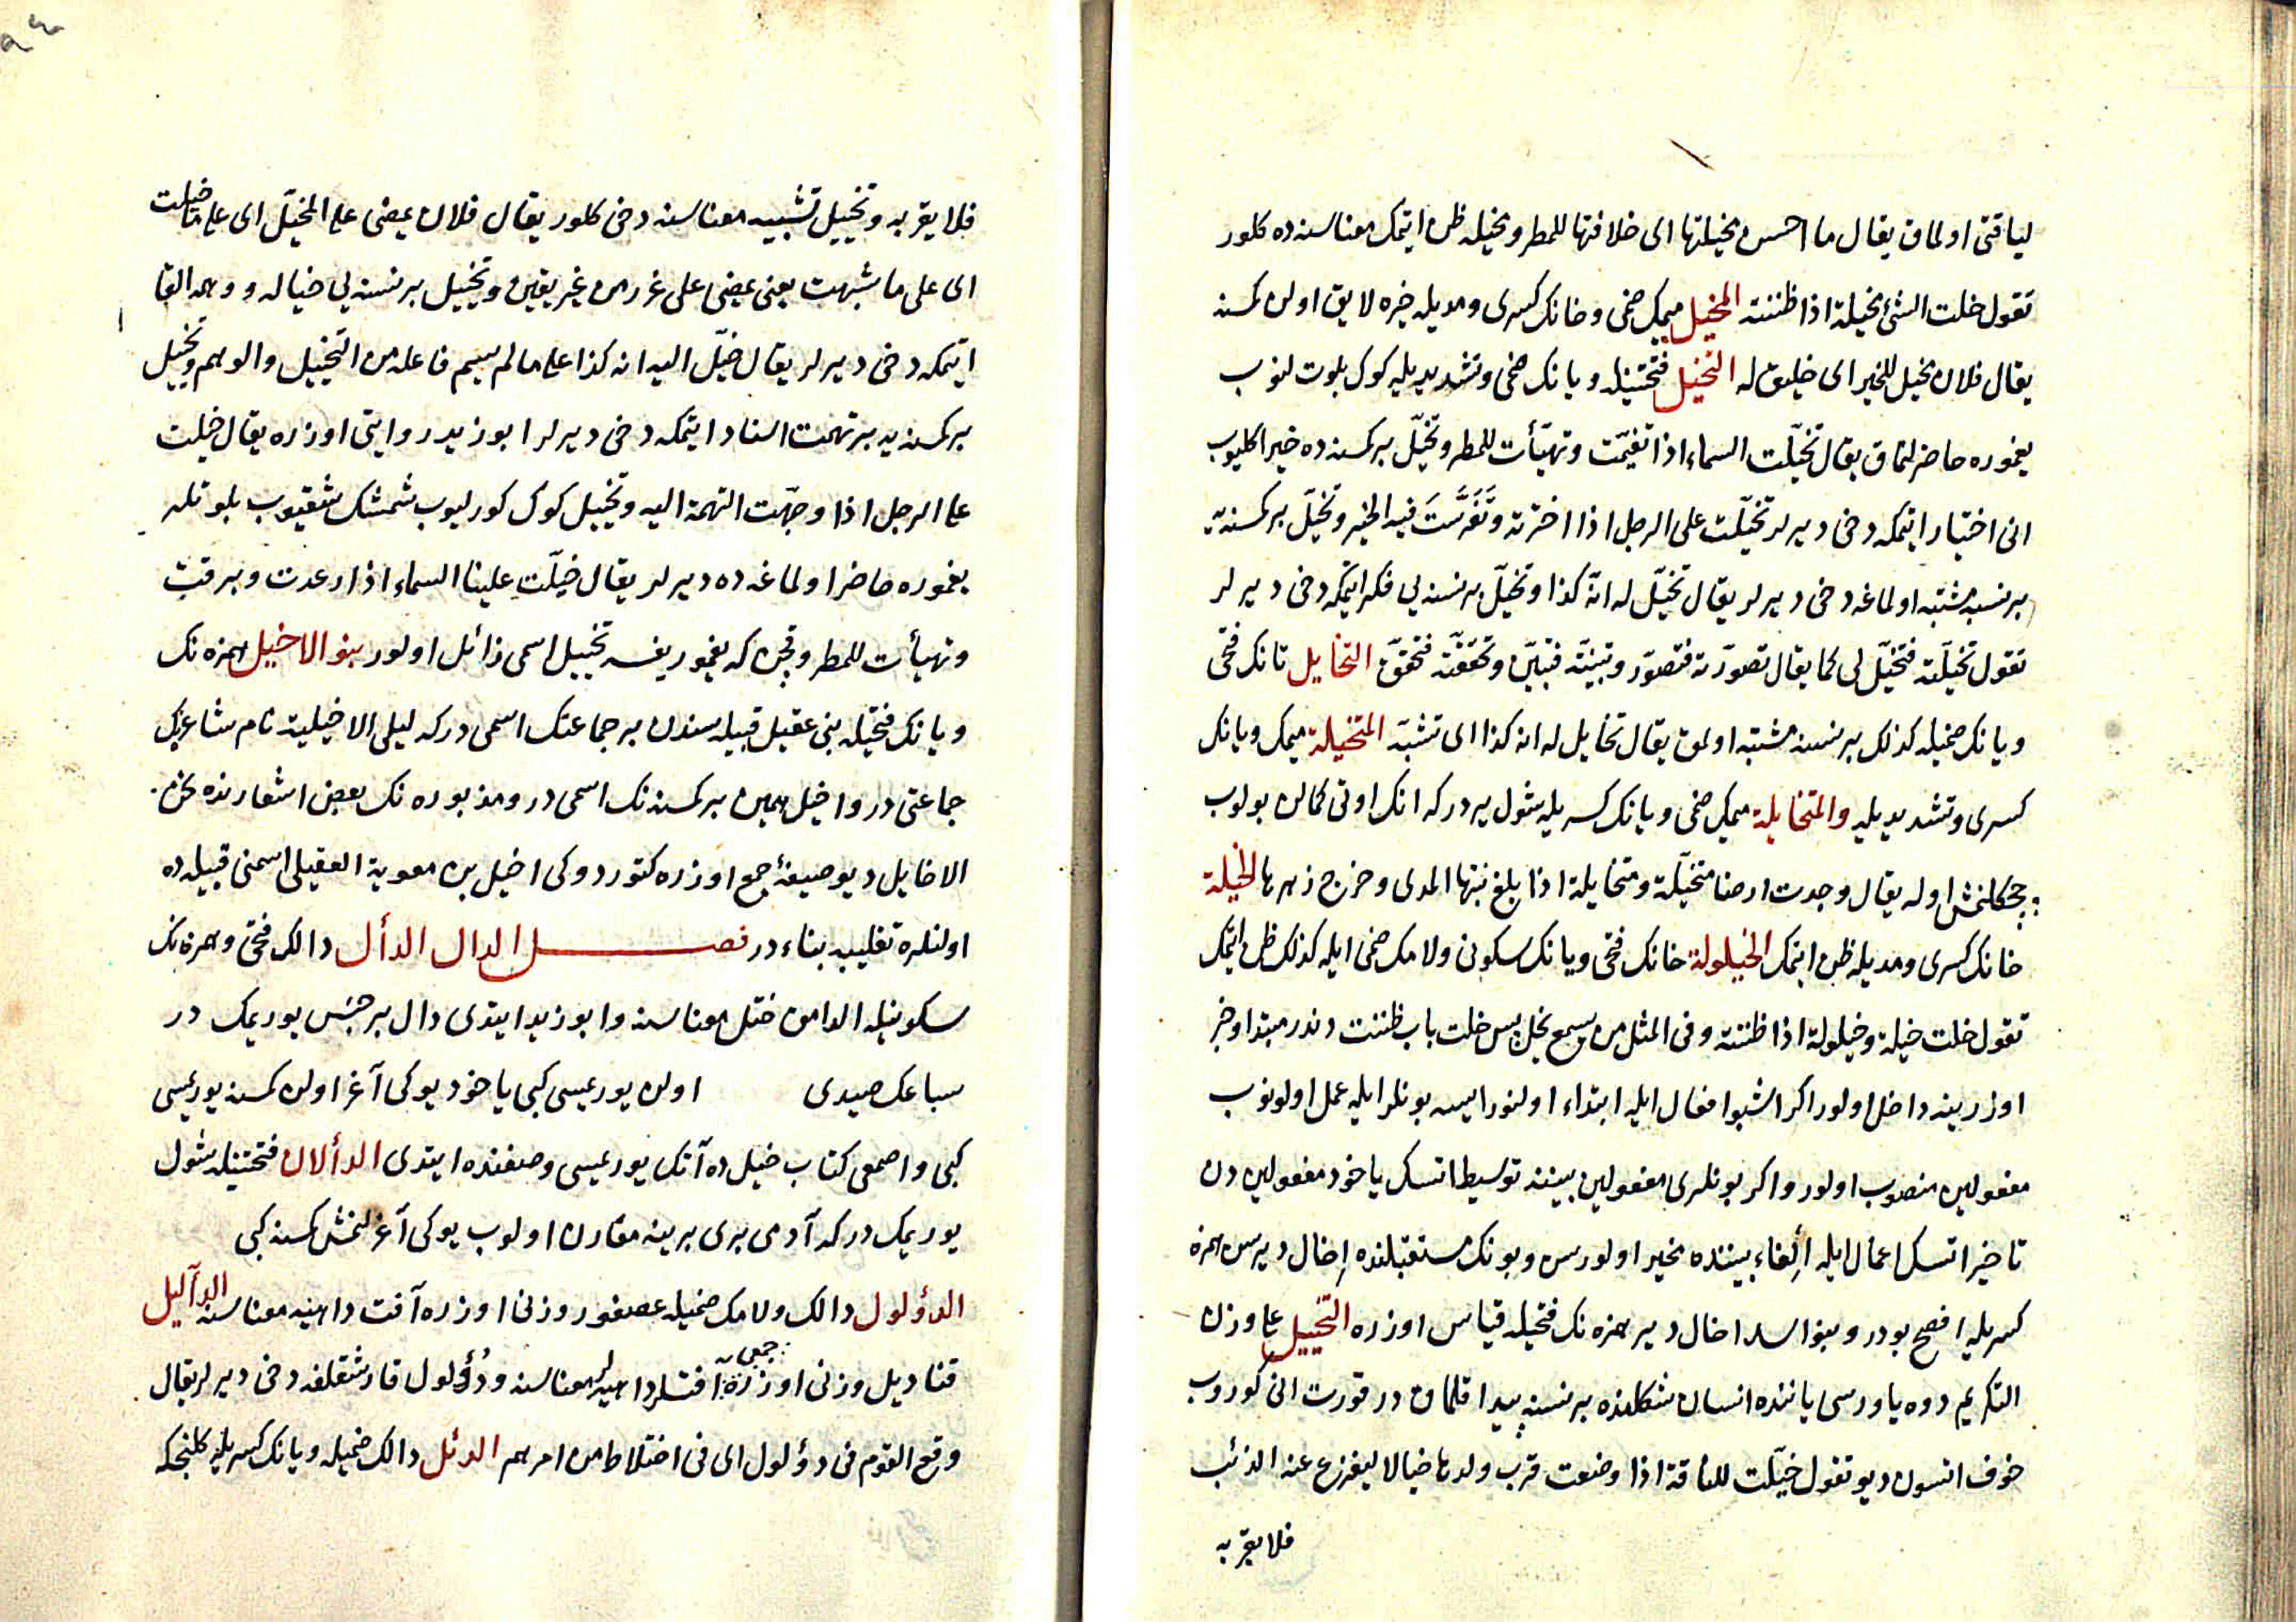 لياقتى اولماق يقال ما احسن مخيلتها اى خلاقتها للمطر ومخيله ظن ايتمك معناسنه ده كلور
تقول خلت الشئ مخيلة اذا ظننته المخيل ميمك ضمى وخانك كسرى ومديله خيره لايق اولن كمسنه
يقال فلان مخيل للخير اى خليق له التخيل فتحتينله ويانك ضمى وتشديديله كوك بلوتلنوب
يغموره حاضرلنماق يقال تخيّلت السماء اذا تغيّمت وتهيّأت للمطر وتخيّل بر كمسنه ده خير اكليوب
انى اختيار ايتمكه دخى ديرلر تخيّلت على الرجل اذا اخترته وتَفَرَّستَ فيه الخير وتخيّل بر كمسنه يه
بر نسنه مشتبه اولماغه دخى ديرلر يقال تخيّل له انّه كذا وتخيّل بر نسنه يى فكر ايتمكه دخى ديرلر
تقول تخيّلته فتخيّل لى كما يقال تصوّرته فتصوّر وتبيّنته فتبيّن وتحقّقته فتحقّق التخايل تانك فتحى
ويانك ضميله كذلك بر نسنه مشتبه اولمق يقال تخايل له انه كذا اى تشبّه المتخيلة ميمك ويانك
كسرى وتشديديله والمتخايلة ميمك ضمى ويانك كسريله شول يردركه انك اوتى كمالن بولوب
چچكلنمش اوله يقال وجدت ارضا متخيّلة ومتخايلة اذا بلغ نبتها المدى وخرج زهرها الخيلة
خانك كسرى ومديله ظن ايتمك الخيلولة خانك فتحى ويانك سكونى ولامك ضمى ايله كذلك ظن ايتمك
تقول خلت خيلة وخيلولة اذا ظننته وفى المثل من يسمع يخل پس خلت باب ظننت دندر مبتدا وخبر
اوزرينه داخل اولور اكر اشبو افعال ايله ابتداء اولنورايسه بونلر ايله عمل اولونوب
مفعولين منصوب اولور واكر بونلرى مفعولين بيننه توسيط اتسك ياخود مفعولين دن
تاخير اتسك اعمال ايله اِلغاء بيننده مخير اولورسن وبونك مستقبلنده اِخال ديرسن همزه
كسريله افصح بودر وبنو اسد اخال دير همزه نك فتحيله قياس اوزره التخييل على وزن
التكريم دوه ياورسى ياننده انسان شكلنده بر نسنه پيدا قلماق در قورت انى كوروب
خوف اتسون ديو تقول خيّلت للناقة اذا وضعت قرب ولدها خيالا ليفزع عنه الذئب
فلا يقربه
فلا يقربه وتخييل تشبيه معناسنه دخى كلور يقال فلان يمضى على المخيّل اى على ما خيلت
اى على ما شبهت يعنى يمضى على غرر من غير يقين وتخييل بر نسنه يى خياله ووهمه القا
ايتمكه دخى ديرلر يقال خيّل اليه انه كذا على ما لم يسم فاعله من التخييل والوهم وتخييل
بر كمسنه يه بر تهمت اسناد ايتمكه دخى ديرلر ابو زيد روايتى اوزره يقال خيلت
على الرجل اذا وجّهت التهمة اليه وتخييل كوك كورليوب شمشك شقيوب بلوتلر
يغموره حاضر اولماغه ده ديرلر يقال خيّلت علينا السماء اذا رعدت وبرقت
وتهيأت للمطر وقچن كه يغمور يغسه تخييل اسمى زائل اولور بنو الاخيل همزه نك
ويانك فتحيله بنى عقيل قبيله سندن بر جماعتك اسمى دركه ليلى الاخيلية نام شاعرنك
جماعتى در واخيل همين بر كمسنه نك اسمى در ومذبوره نك بعض اشعارنده نحن
الاخايل ديو صيغهٔ جمع اوزره كتوردوكى اخيل بن معوية العقيلى اسمنى قبيله ده
اولنلره تغليبه بناء در فصل الدال الدأل دالك فتحى وهمزه نك
سكونيله الدامق ختل معناسنه وابو زيد ايتدى دال بر جنس يوريمك در
سباعك صيدى اولن يوريميسى كبى ياخود يوكى آغر اولن كمسنه يوريميسى
كبى واصمعى كتاب خيل ده آتك يوريميسى وصفنده ايتدى الدألان فتحتينله شول
يوريمك دركه آدمى برى برينه مقارن اولوب يوكى آغرلنمش كمسنه كبى
الدؤلول دالك ولامك ضميله عصفور وزنى اوزره آفت داهيه معناسنه الدآليل
قناديل وزنى اوزره جمعى آفتلر داهيه لر معناسنه ودُؤلول قارشقلغه دخى ديرلر يقال
وقع القوم فى دؤلول اى فى اختلاط من امرهم الدئل دالك ضميله ويانك كسريله كلنجكه